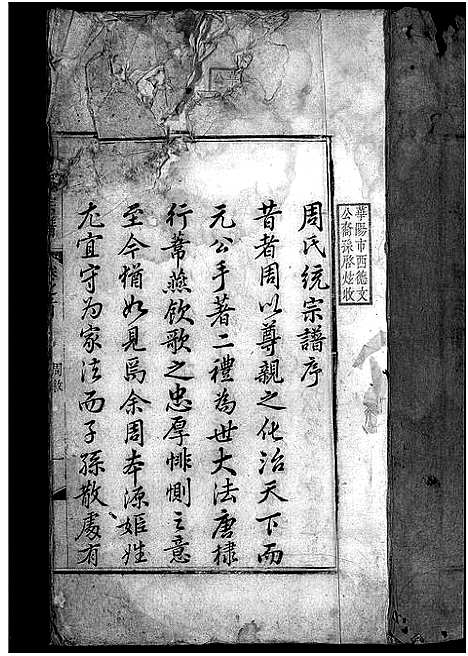 華陽市西德文
公裔孫啓炫收
周氏統宗譜序
昔者周以尊親之化治天下而
元公手著二禮為世大法唐棣
行葦燕飲歌之忠厚悱惻之意
至今猶如見焉余周本源姬姓
尤宜守为家法而子孫散處有